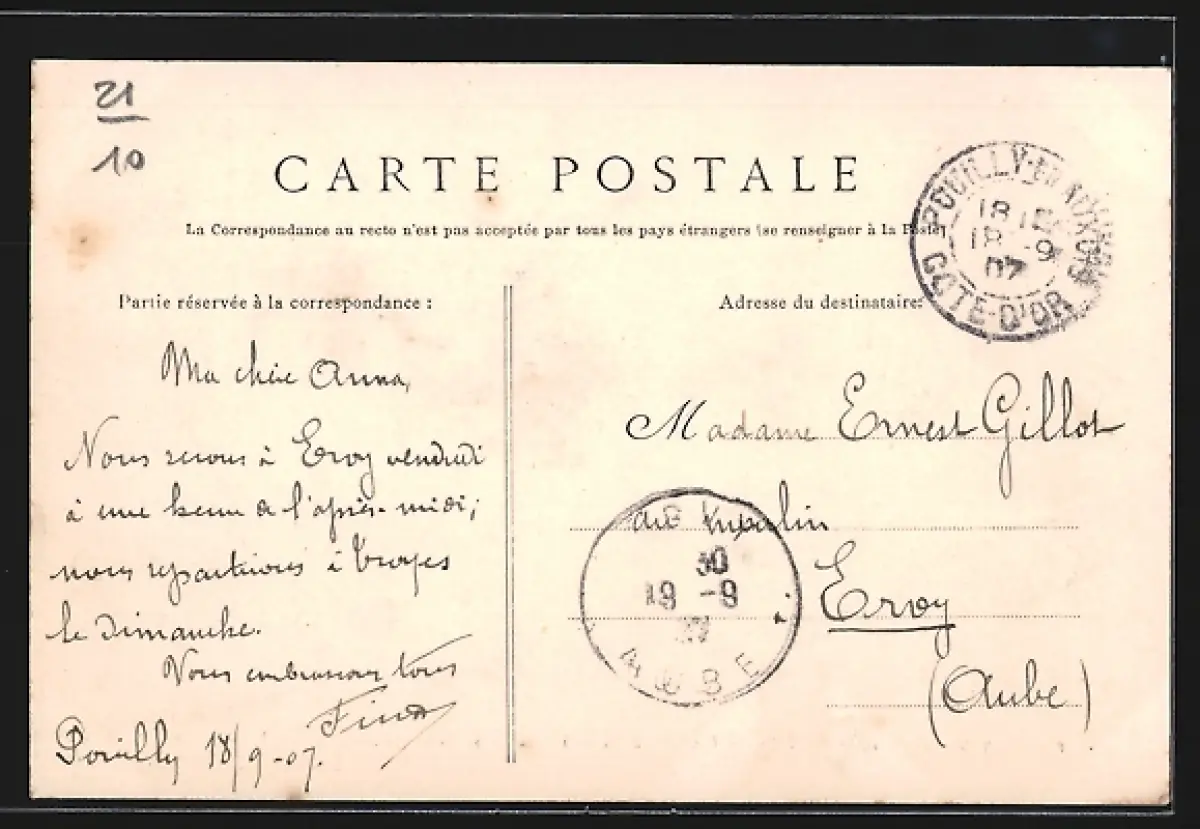 21
10
CARTE POSTALE
La Correspondance au recto n'est pas acceptée par tous les pays étrangers (se renseigner à la Poste)
POUILLY-EN-AUXOIS
18
18 -9
07
COTE-D'OR
Partie réservée à la correspondance :
Adresse du destinataire:
Ma chère Anna,
Nous serons à Ervy vendredi
à une heure de l'après-midi;
nous repartirons à Troyes
le dimanche.
Nous embrassons tous
Fina
Pouilly 18/9-07.
Madame Ernest Gillot
au
Ervy
(Aube)
30
19 -9
AUBE